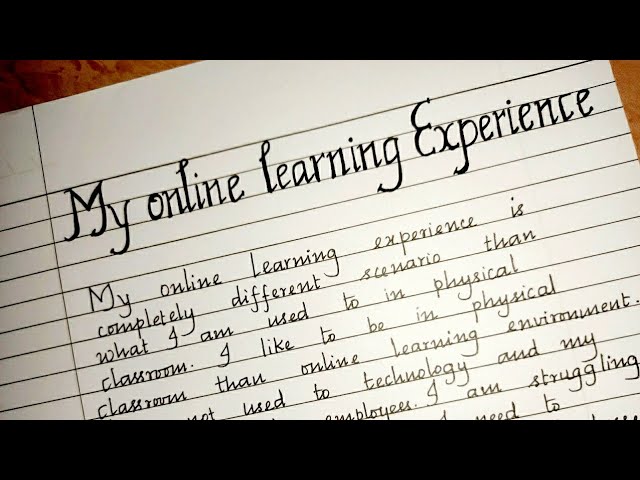 My online learning Experience
My online Learning experience is
completely different scenario than
what I am used to in physical
classroom. I like to be in physical
classroom than online learning environment.
not used to technology and my
employees. I am struggling
need to